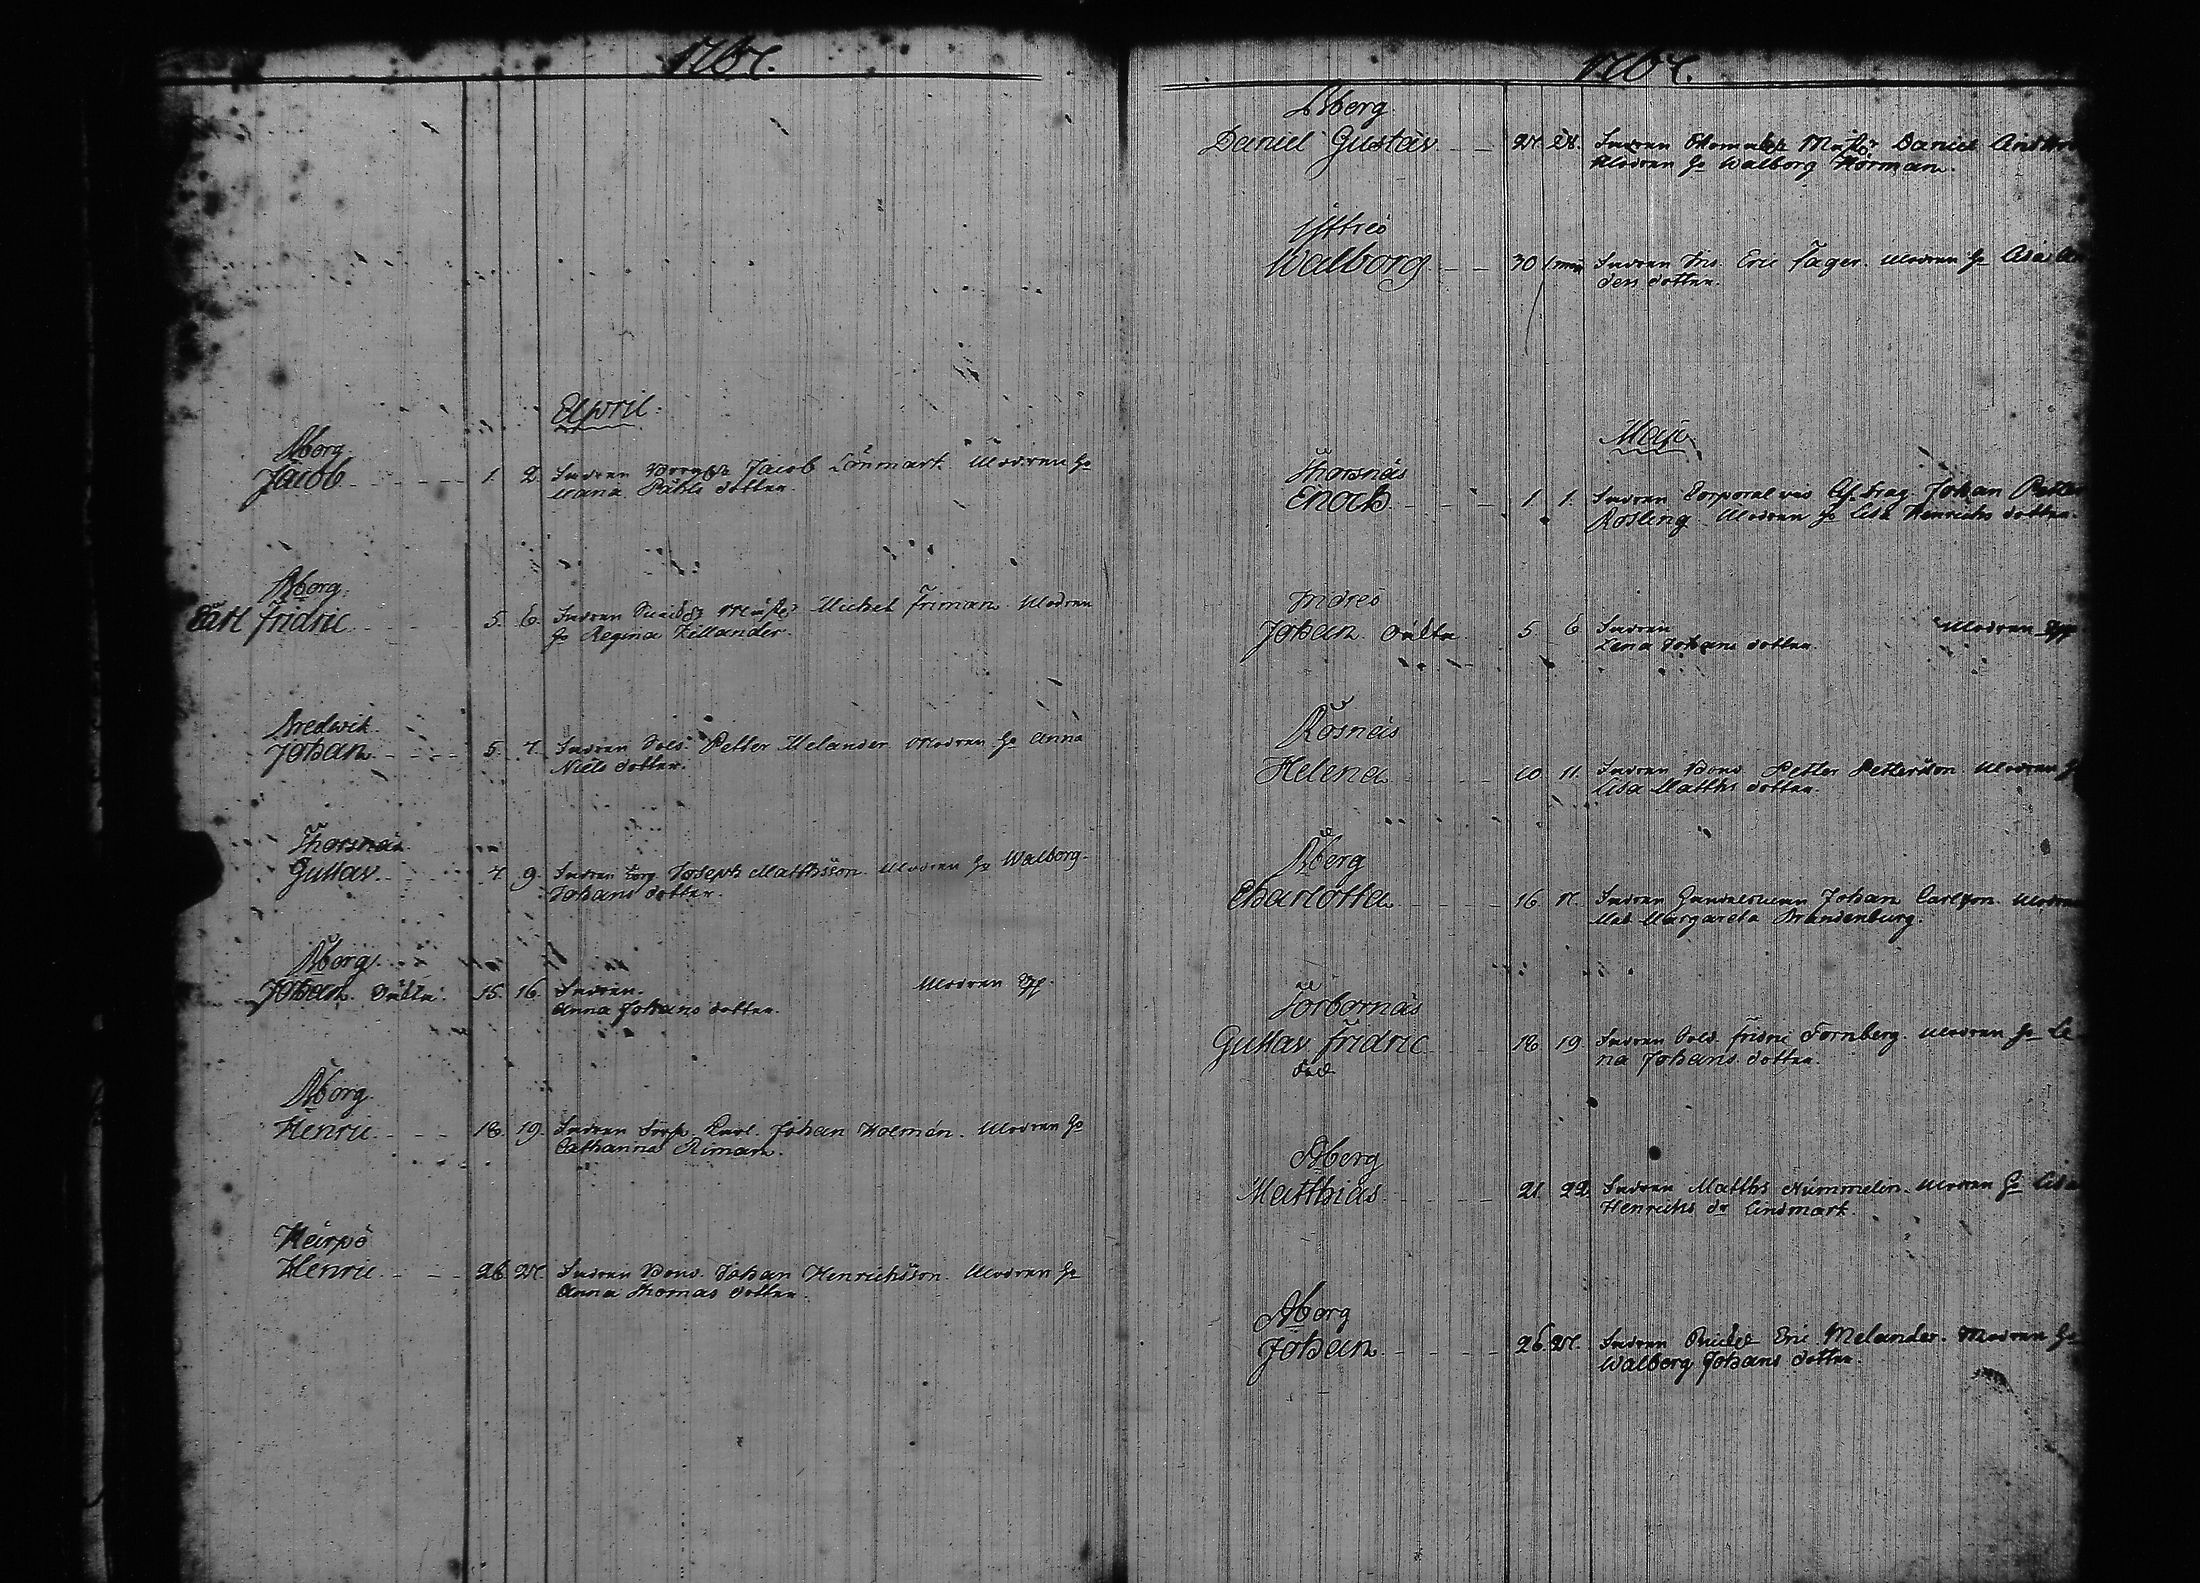 1767.
April.
Åborg
Jacob 1. 2. Fadren Jacob Lönmark. Modren H:
Maria Påhls dotter.
Åborg.
Carl Fridric 5. 6. Fadren Michel Friman. Modren
H: Regina Zillander.
Bredwik.
Johan 5. 7. Fadren Sold. Petter Melander. Modren H: Anna
Niels dotter.
Thorsnäs
Gustav 7. 9. Fadren torp. Joseph Matthsson. Modren H: Walborg
Johans dotter.
Åborg.
Johan oäkta. 15. 16. Fadren. Modren
Anna Johans dotter.
Åborg.
Henric 18. 19. Fadren Johan Holmén. Modren H:
Catharina Riman.
Kärpö
Henric 26. 27. Fadren Bond. Johan Henrichsson. Modren H:
Anna Thomas dotter.
1767.
Åberg
Daniel Gustav 27. 28. Fadren Mäster Daniel
Modren H: Walborg Hörman.
Yttreö
Walborg 30 1 maii Fadren Eric Fager. Modren H: Lisa
ders dotter.
Maji
Thorsnäs
Enoch 1. 1. Fadren Corporal Johan Petter
Rosling. Modren H: Lisa Henrichs dotter.
Indreö
Johan oäkta 5 6 Fadren Modren
Lena Johans dotter.
Rosnäs
Helena 10 11. Fadren Bond. Petter Pettersson. Modren H:
Lisa Matths dotter.
Åberg
Charlotta 16 17. Fadren Handelsman Johan Carlson. Modren
Mad. Margareta Brandenburg.
Torbornäs
Gustav Fridric 18 19. Fadren Sold. Fridric Fornberg. Modren H: Le
död. na Johans dotter.
Åberg
Matthias 21. 22. Fadren Matths Nummelin. Modren H: Lisa
Henrichs dr Lindmark.
Åborg
Johan 26. 27. Fadren Eric Melander. Modren H:
Walborg Johans dotter.